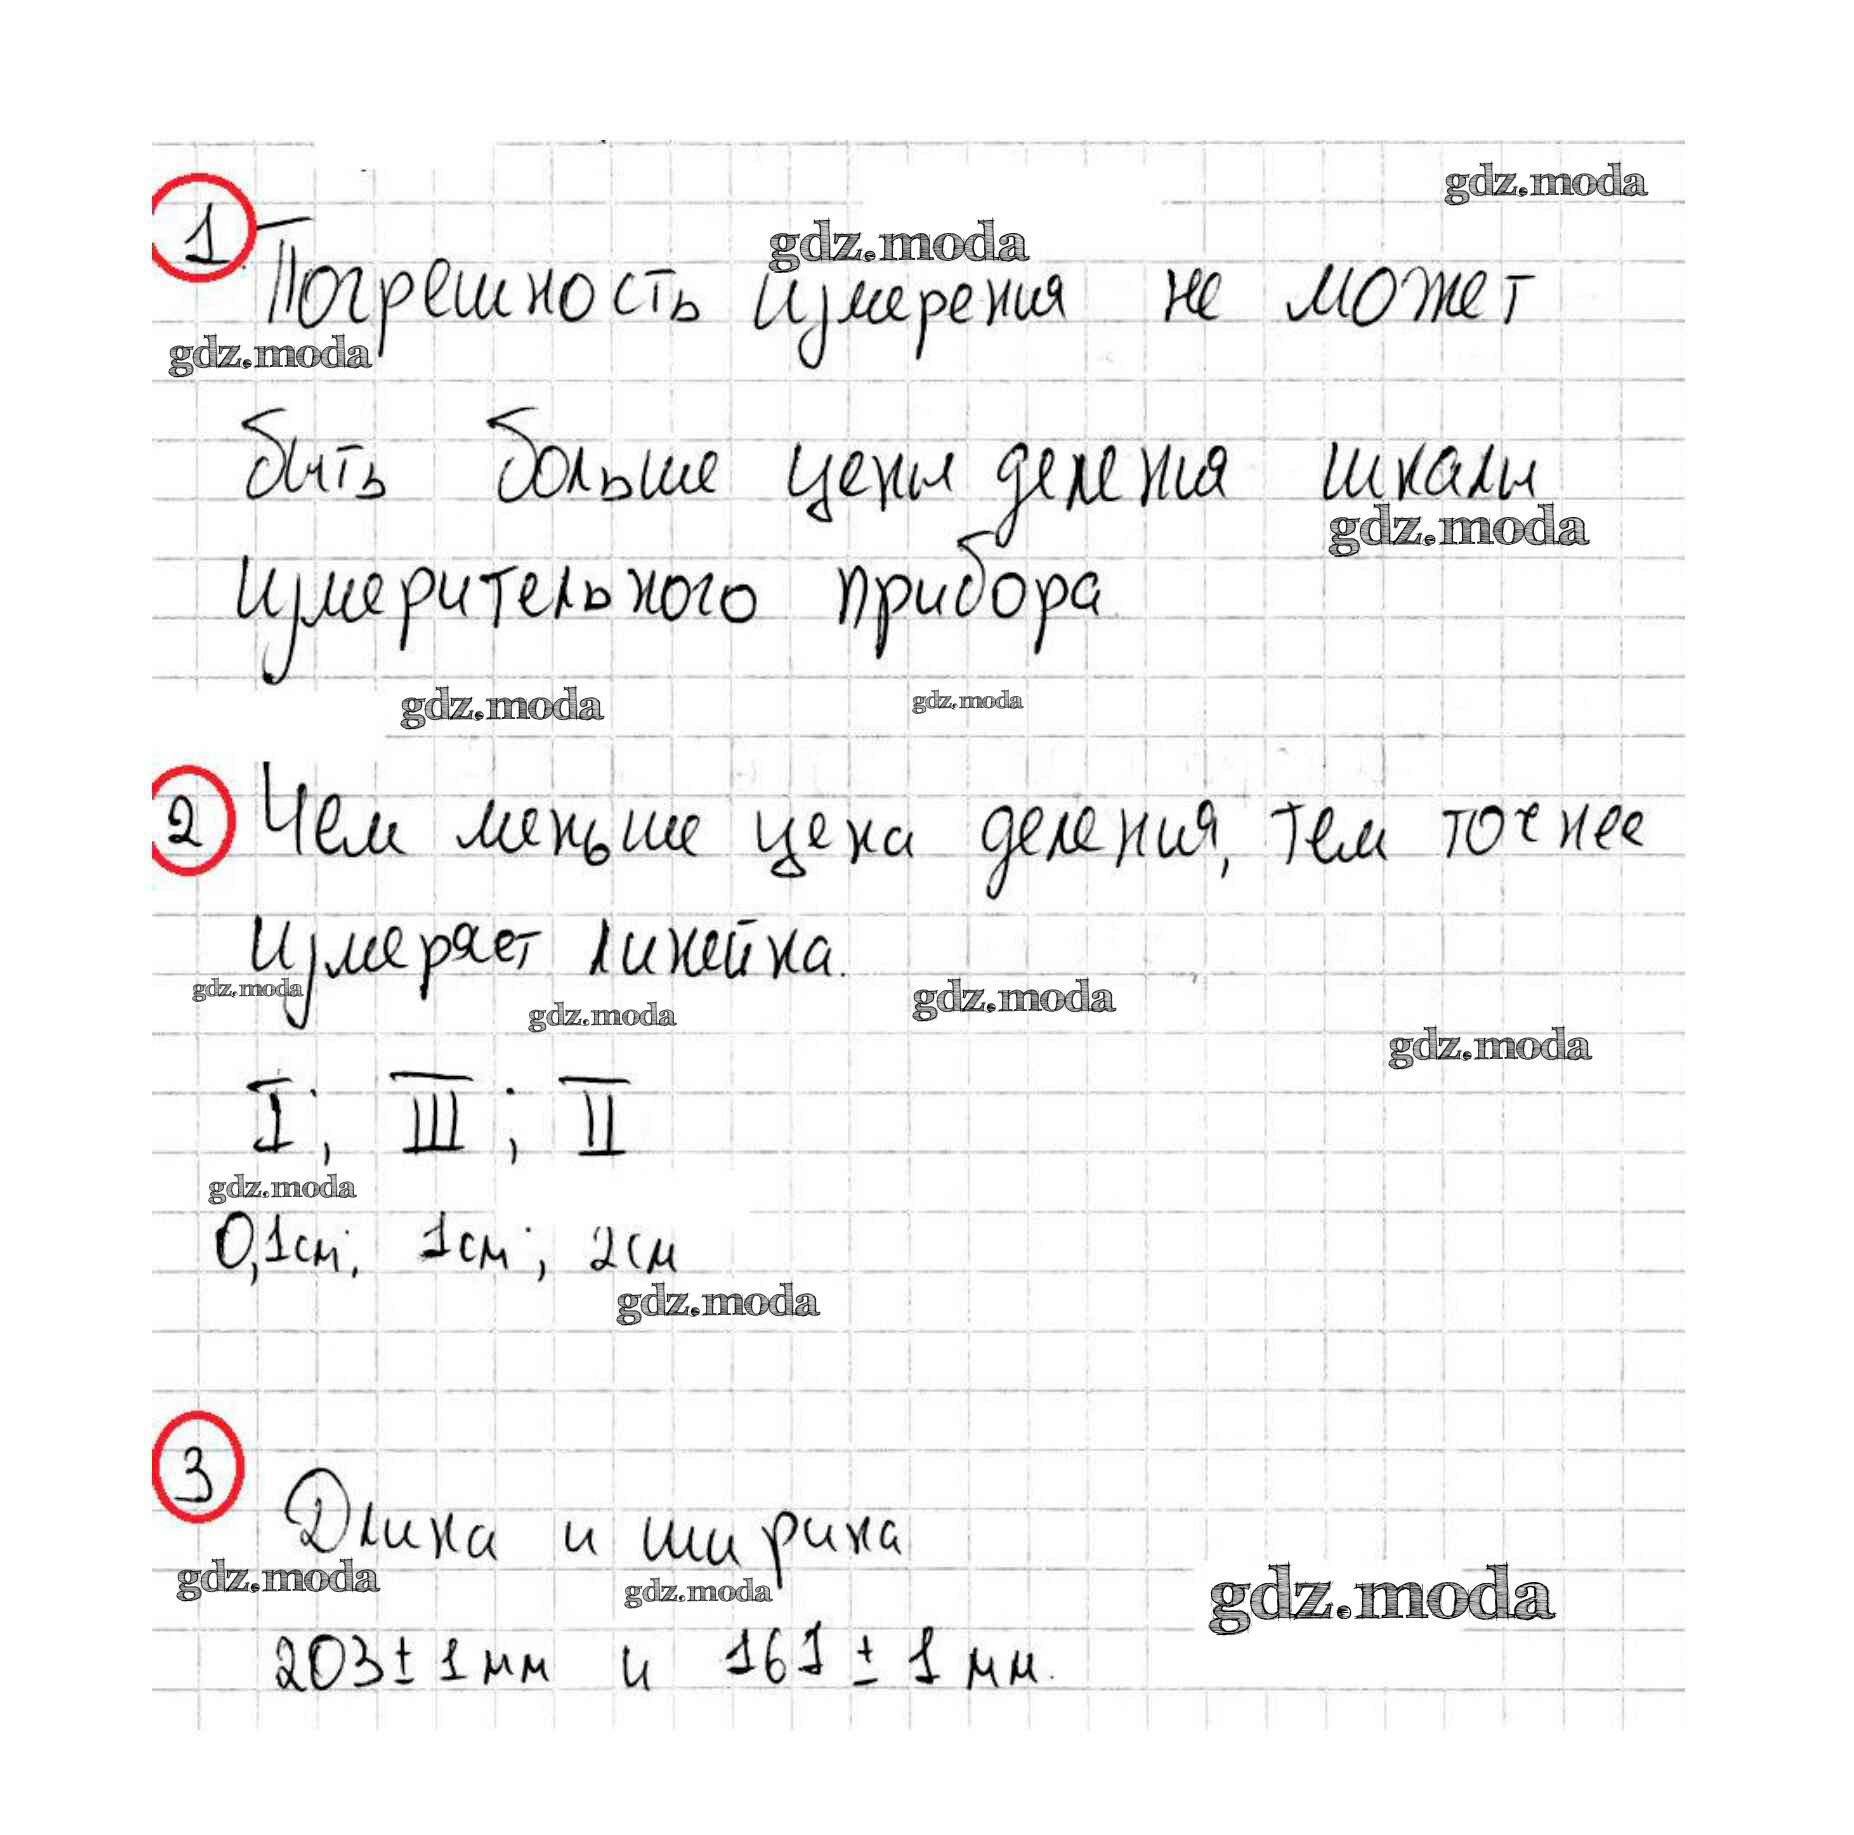 gdz.moda
gdz.moda
1. Погрешность измерения не может
gdz.moda
быть больше цены деления шкалы
gdz.moda
измерительного прибора
gdz.moda gdz.moda
2 Чем меньше цена деления, тем точнее
измеряет линейка.
gdz.moda gdz.moda gdz.moda
gdz.moda
I; III; II
gdz.moda
0,1см; 1см; 2см
gdz.moda
3
Длина и ширина
gdz.moda gdz.moda gdz.moda
203 ± 1 мм и 161 ± 1 мм.